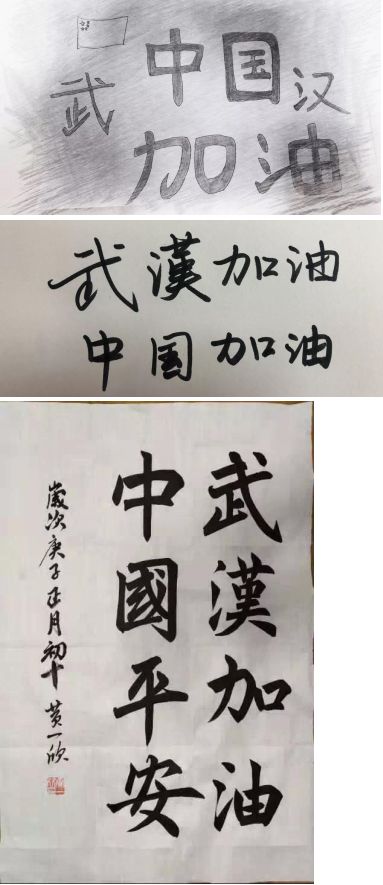 中国
武 汉
加油
武漢加油
中国加油
武漢加油
中國平安
歲次庚子正月初十 黄一欣